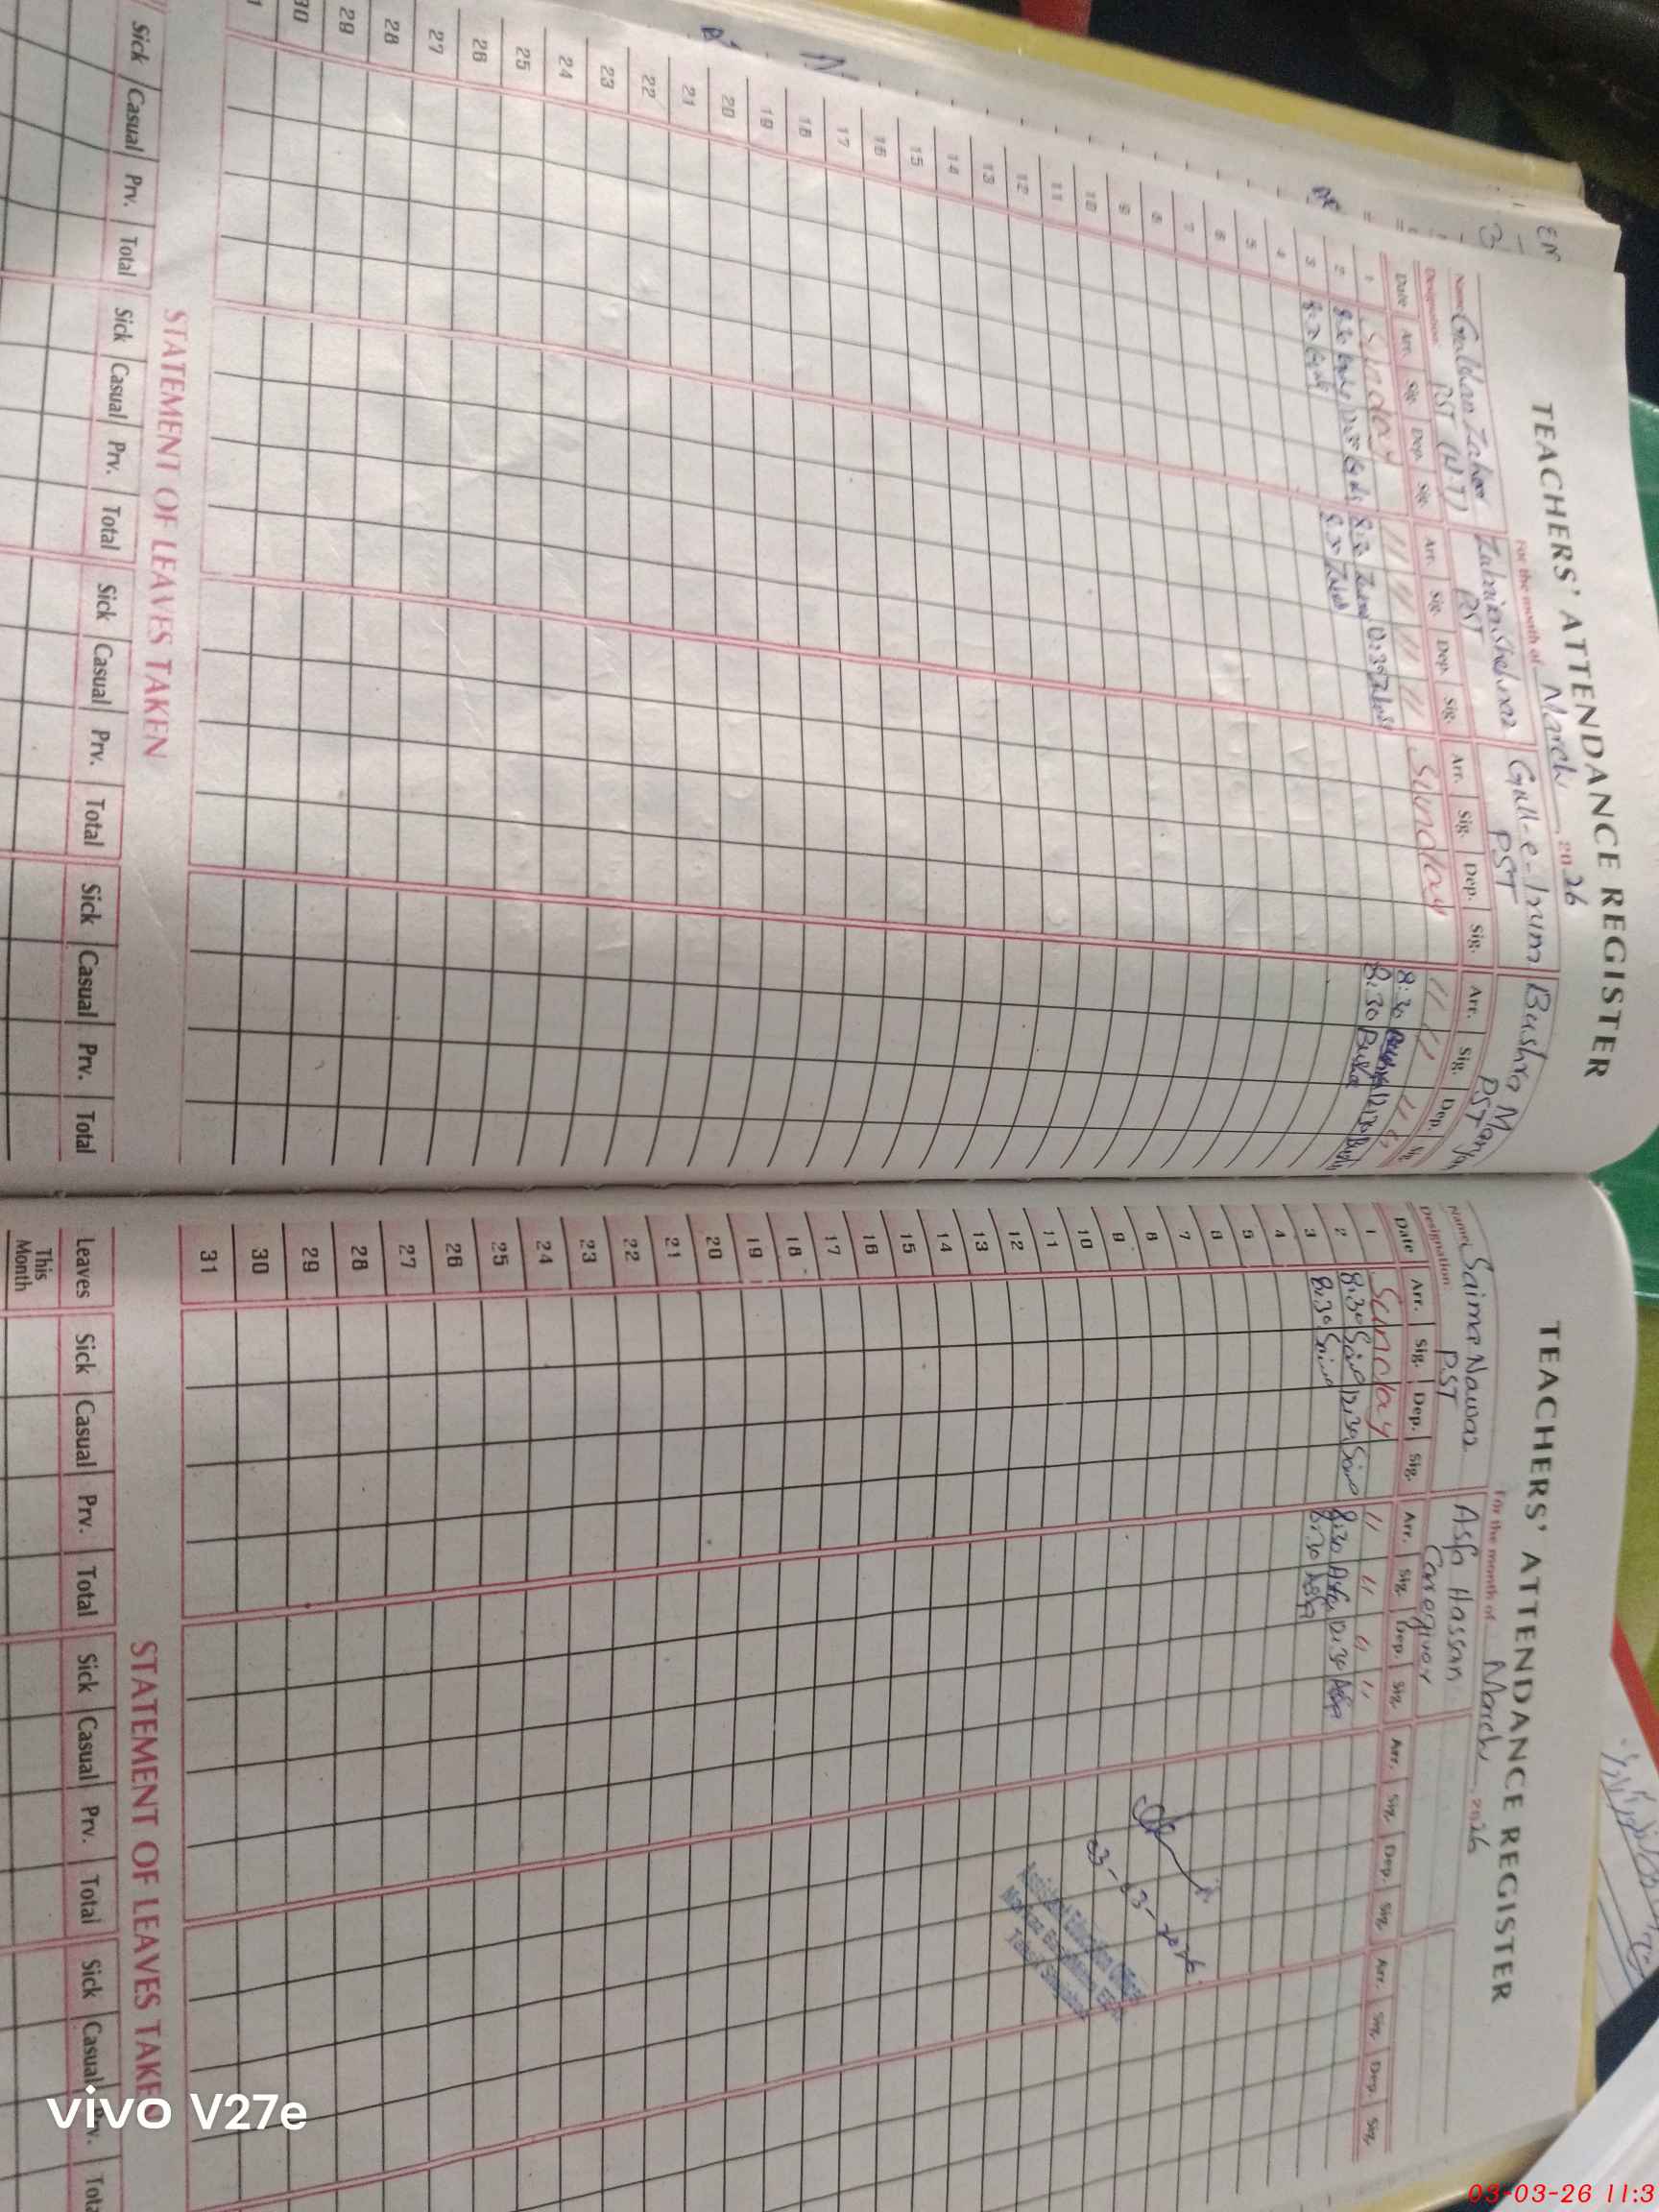 TEACHERS' ATTENDANCE REGISTER
For the month of March 2026
Name Zahoor Zubnia Shehnaz Gull-e-Irum Bushra
Designation PST (H.T) PST PST PST
Date Arr. Sig. Dep. Sig. Arr. Sig. Dep. Sig. Arr. Sig. Dep. Sig. Arr. Sig. Dep. Sig.
1 Sunday " " " " Sunday " " " "
2 8:30 12:30 8:30 12:30 8:30 12:30
3 8:30 8:30 8:30 Bushra
4
5
6
7
8
9
10
11
12
13
14
15
16
17
18
19
20
21
22
23
24
25
26
27
28
29
30
STATEMENT OF LEAVES TAKEN
Sick Casual Prv. Total Sick Casual Prv. Total Sick Casual Prv. Total Sick Casual Prv. Total
TEACHERS' ATTENDANCE REGISTER
For the month of March 2026
Name Saima Nawaz Asfa Hassan
Designation PST Caregiver
Date Arr. Sig. Dep. Sig. Arr. Sig. Dep. Sig. Arr. Sig. Dep. Sig. Arr. Sig. Dep. Sig.
1 Sunday " " " "
2 8:30 Saima 12:30 Saima 8:30 Asfa 12:30 Asfa
3 8:30 Saima 8:30 Asfa
4
5
6
7
8
9
10
11
12
13
14
15
16
17
18
19
20
21
22
23
24
25
26
27
28
29
30
31
03-03-2026
Assistant Education Officer
STATEMENT OF LEAVES TAKE
Leaves Sick Casual Prv. Total Sick Casual Prv. Total Sick Casual Prv. Total
This Month
vivo V27e
03-03-26 11:3